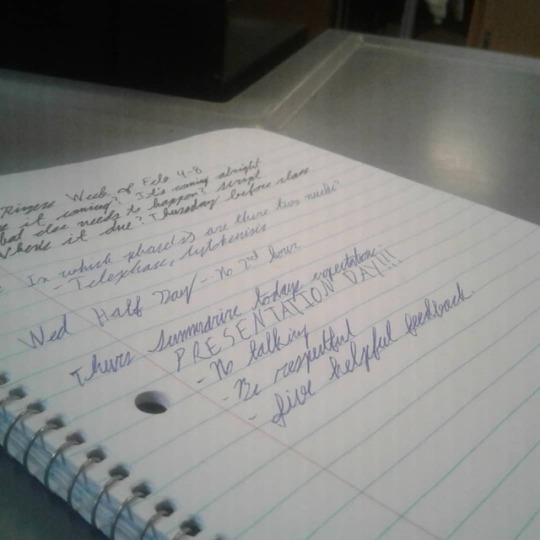 Ringers Week of Feb 4-8
is it coming? It's coming alright
What else needs to happen? Script
When's it due? Thursday before class
In which phase(s) are there two nuclei?
- Telophase, Cytokenisis
Wed Half Day - No 7th hour
Thurs Summarize todays expectations.
PRESENTATION DAY!!!
- No talking
- Be respectful
- Give helpful feedback